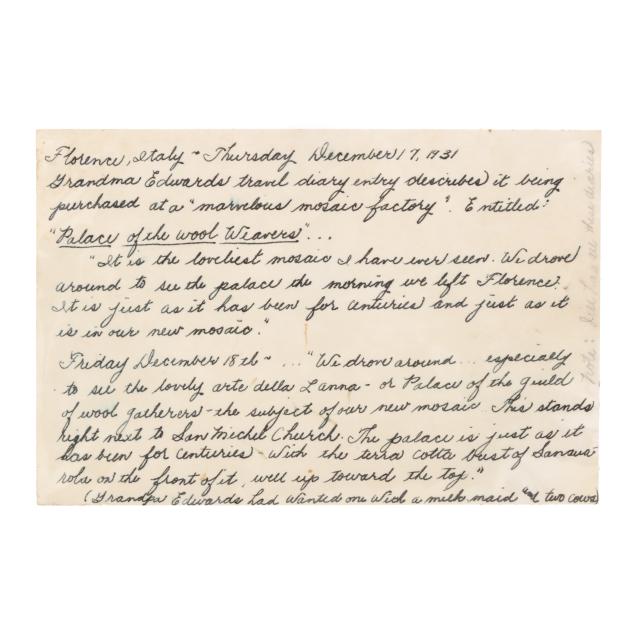 Florence, Italy ~ Thursday December 17, 1931
Grandma Edwards travel diary entry describes it being
purchased at a "marvelous mosaic factory". Entitled:
"Palace of the wool Weavers"...
"It is the loveliest mosaic I have ever seen. We drove
around to see the palace the morning we left Florence.
It is just as it has been for centuries and just as it
is in our new mosaic."
Friday December 18th ~ ... "We drove around ... especially
to see the lovely arte della Lanna - or Palace of the guild
of wool gatherers - the subject of our new mosaic. This stands
right next to San Michel Church. The palace is just as it
has been for centuries. With the terra cotta bust of
rola on the front of it, well up toward the top."
(Grandpa Edwards had wanted one with a milk maid and two cows)
Note: has all these diaries